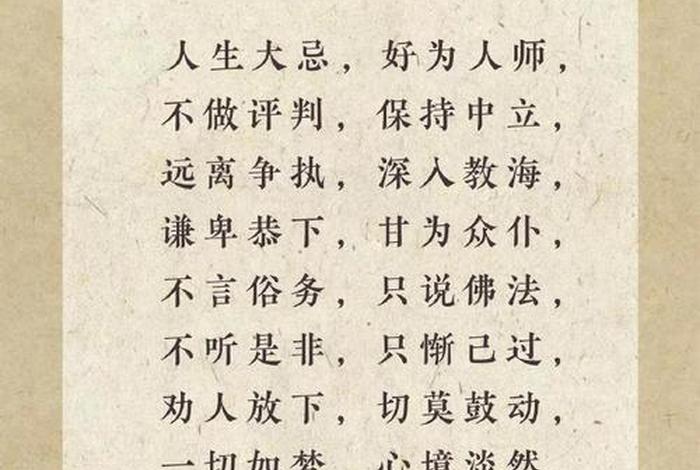 人生大忌，好为人师，
不做评判，保持中立，
远离争执，深入教海，
谦卑恭下，甘为众仆，
不言俗务，只说佛法，
不听是非，只惭己过，
劝人放下，切莫鼓动，
一切如梦，心境淡然